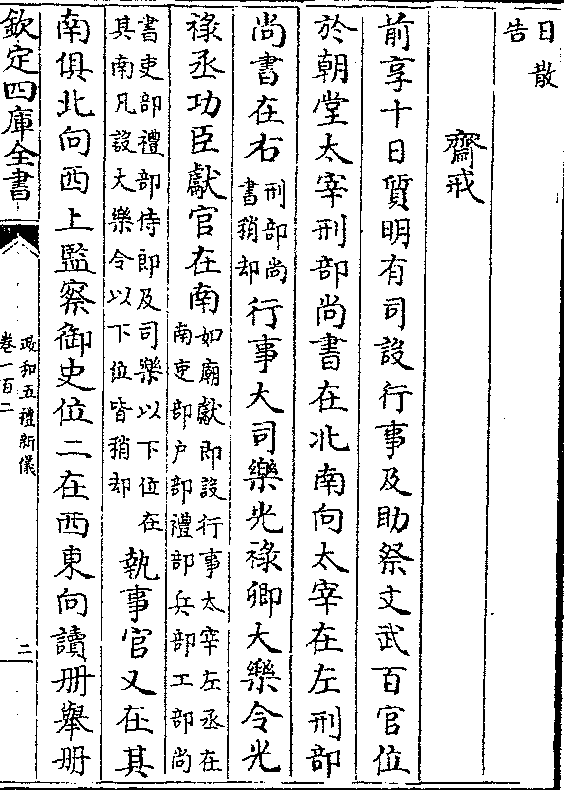 日散
告
齋戒
前享十日質明有司設行事及助祭文武百官位
於朝堂太宰刑部尚書在北南向太宰在左刑部
尚書在右刑部尚
書稍却行事大司樂光祿卿大樂令光
祿丞功臣獻官在南如廟獻即設行事太宰左丞在
南吏部户部禮部兵部工部尚
書吏部禮部侍郎及司樂以下位在
其南凡設大樂令以下位皆稍却執事官又在其
南俱北向西上監察御史位二在西東向讀册舉册
欽定四庫全書
政和五禮新儀
卷一百二
二